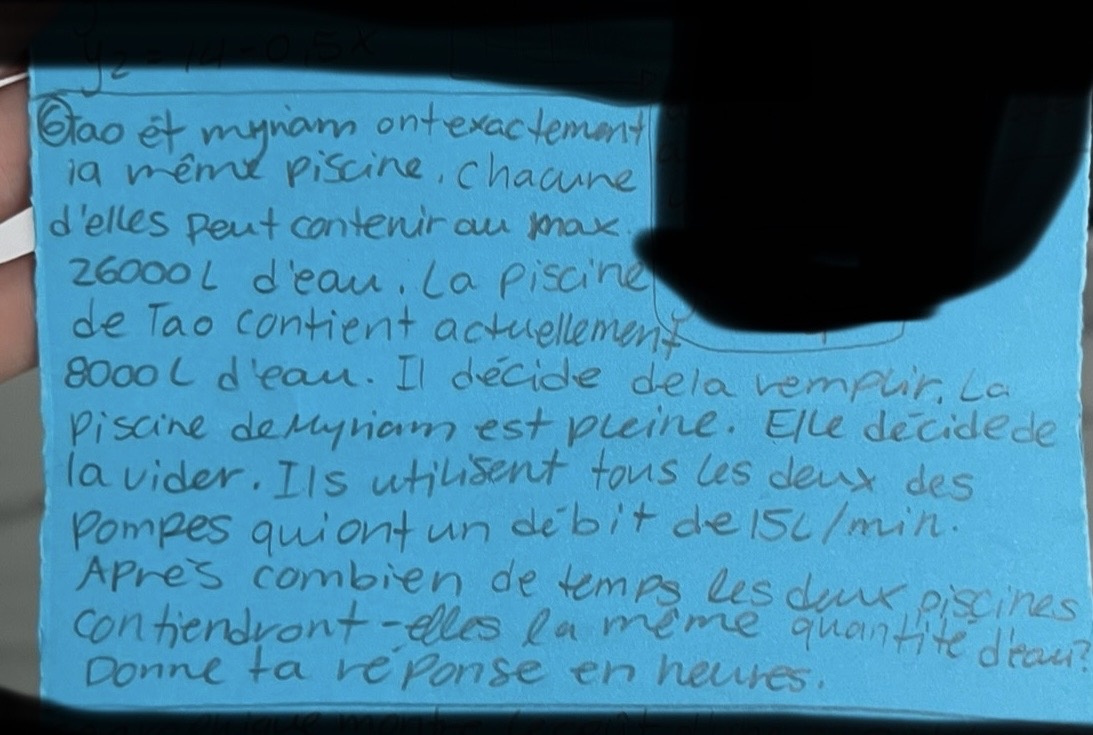 y2 = 14 - 0,5x
⑥Tao et myriam ont exactement
la même piscine. Chacune
d'elles peut contenir au max.
26000L d'eau. La piscine
de Tao contient actuellement
8000L d'eau. Il décide de la remplir. La
piscine de Myriam est pleine. Elle décide de
la vider. Ils utilisent tous les deux des
pompes qui ont un débit de 15L/min.
Après combien de temps les deux piscines
contiendront-elles la même quantité d'eau?
Donne ta réponse en heures.